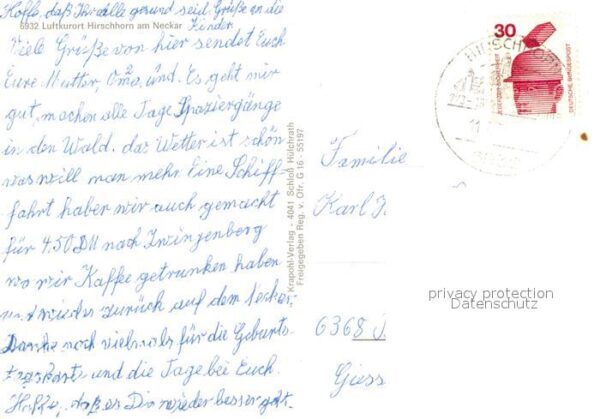 Hoffe, daß Ihr alle gesund seid. Grüße an die
Kinder
6932 Luftkurort Hirschhorn am Neckar
Viele Grüße von hier sendet Euch
Eure Mutter, Oma, und. Es geht mir
gut, machen alle Tage Spaziergänge
in den Wald. das Wetter ist schön
was will man mehr. Eine Schiff-
fahrt haben wir auch gemacht
für 4.50 DM nach Zwingenberg
wo wir Kaffee getrunken haben
und wieder zurück auf dem Neckar.
Danke noch vielmals für die Geburts-
und die Tage bei Euch.
Hoffe, daß es Dir wieder besser geht.
Krapohl-Verlag - 4041 Schloß Hülchrath
Freigegeben Reg. v. Ofr. G 16 - 55197
30
DEUTSCHE BUNDESPOST
HIRSCHHORN
Familie
Karl
6368
Giess
privacy protection
Datenschutz